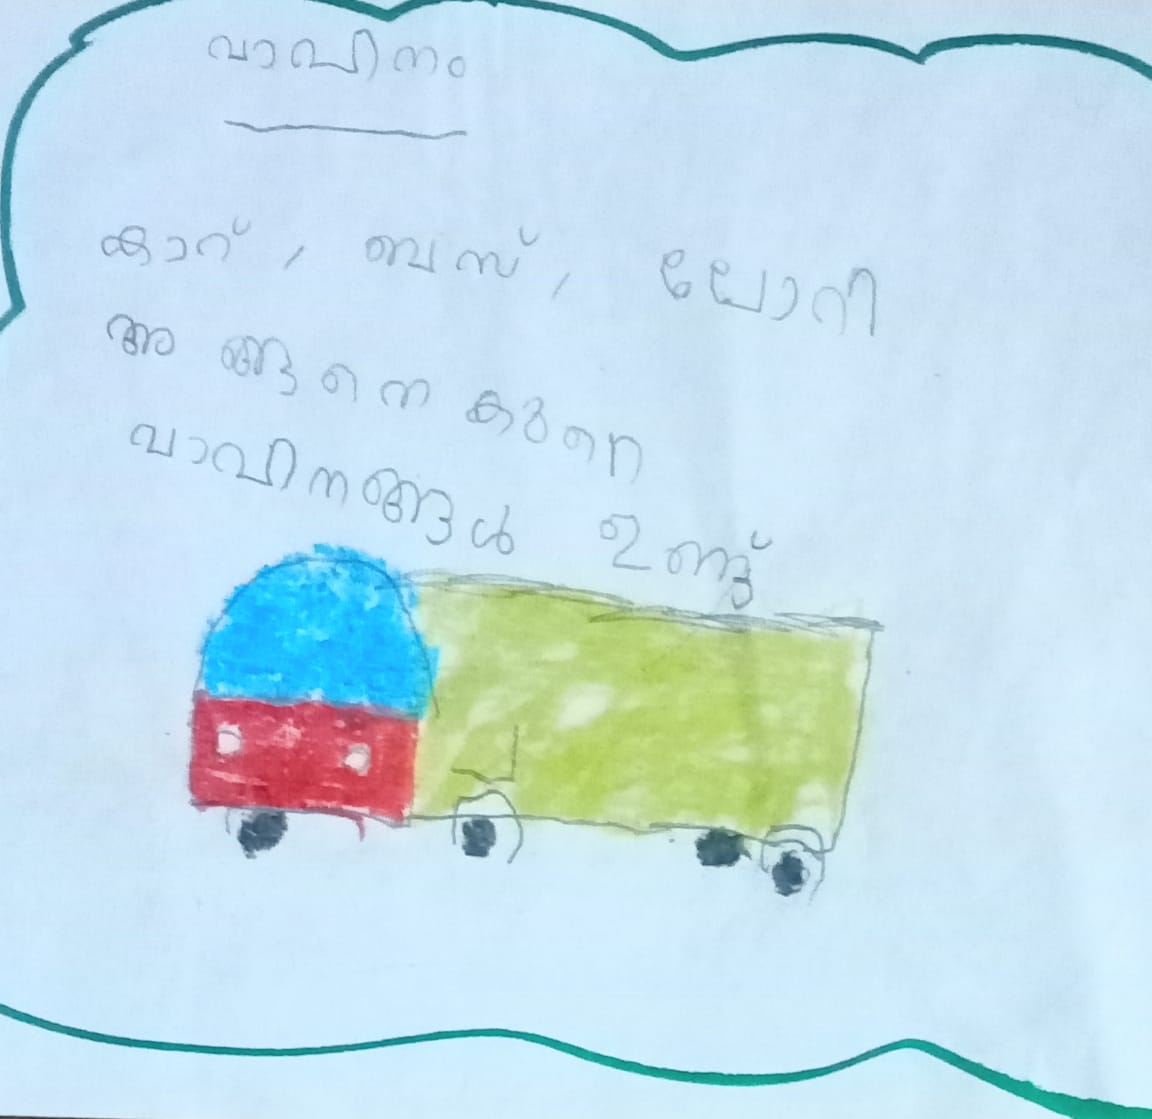 വാഹിനം
കാറ്, ബസ്, ലോറി
അങ്ങനെ കുറെ
വാഹിനങ്ങൾ ഉണ്ട്